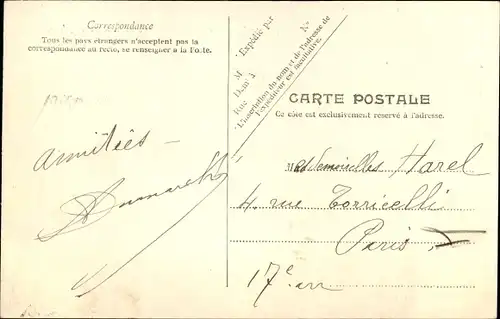 Correspondance
Tous les pays étrangers n'acceptent pas la
correspondance au recto, se renseigner à la Poste.
Expédié par
M
Demt à
Rue
N°
L'inscription du nom et de l'adresse de
l'expéditeur est facultative.
CARTE POSTALE
Ce côté est exclusivement réservé à l'adresse.
Amitiés –
Mesdemoiselles Harel
4. rue Torricelli
Paris
17e arr